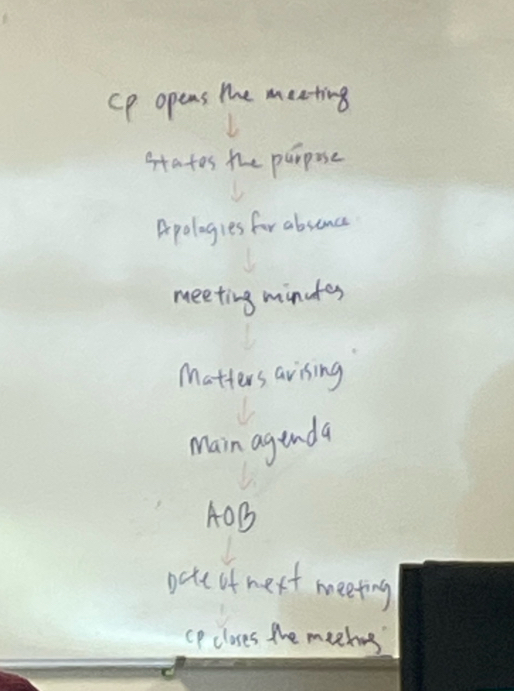 CP opens the meeting
States the purpose
Apologies for absence
meeting minutes
Matters arising
Main agenda
AOB
Date of next meeting
CP closes the meeting